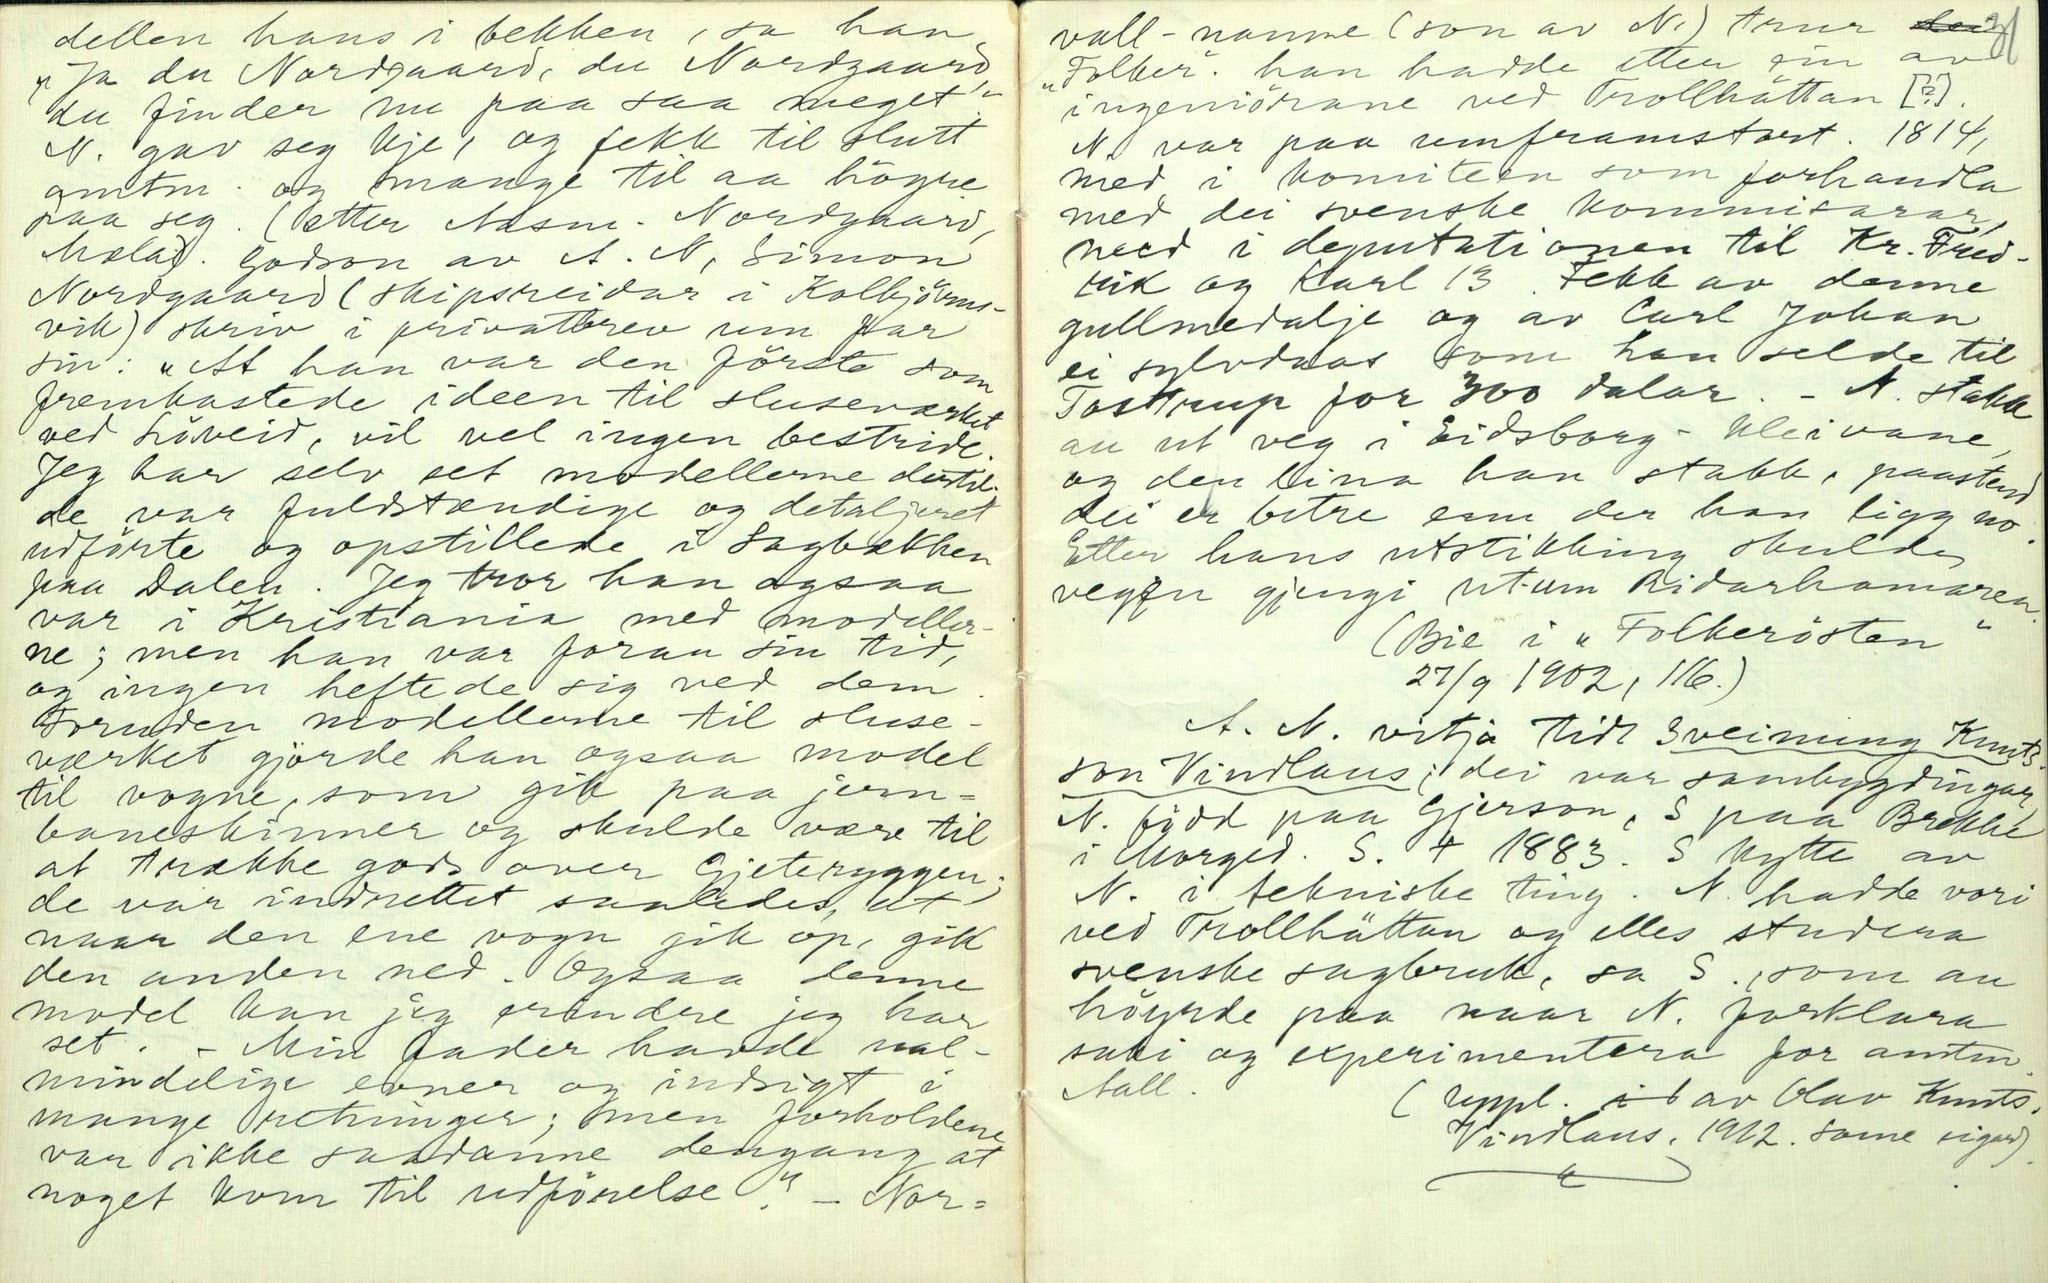 dellen hans i bekken, sa han
"Ja du Nordgaard, du Nordgaard
du finder nu paa saa meget".
N. gav seg kje, og fekk til slutt
amtm. og mange til aa högre
paa seg. (etter Aasm. Nordgaard,
Mæla). Godson av A. N, Simon
Nordgaard (skipsreidar i Kolbjörns-
vik) skriv i privatbrev um far
sin: "At han var den förste som
fremkastede ideen til sluseværket
ved Löveid, vil vel ingen bestride.
Jeg har selv set modellerne dertil.
de var fuldstændige og detaljeret
udförte og opstillede i Sagbækken
paa Dalen. Jeg tror han ogsaa
var i Kristiania med modeller-
ne; men han var foran sin tid,
og ingen heftede sig ved dem.
Foruden modellerne til sluse-
værket gjörde han ogsaa model
til vogne, som gik paa jern-
baneskinner og skulde være til
at trække gods over Gjeteryggen;
de var indrettet saaledes, at
naar den ene vogn gik op, gik
den anden ned. Ogsaa denne
model kan jeg erindre jeg har
set. - Min fader havde ual-
mindelige evner og indsigt i
mange retninger; men forholdene
var ikke saadanne dengang at
noget kom til udförelse". - Nor-
31
vall-namne (son av N.) trur dei
"Folker". han hadde etter ein av
ingeniörane ved Trollhättan [?].
N. var paa umframstort. 1814,
med i komiteen som forhandla
med dei svenske kommisarar,
med i deputationen til Kr. Fred-
rik og Karl 13. Fekk av denne
gullmedalje og av Carl Johan
ei sylvdaas som han selde til
Tostrup for 300 dalar. - N. stakk
au ut veg i Eidsborg-kleivane,
og den lina han stakk, paastend
dei er betre enn der han ligg no.
Etter hans utstikking skulde
vegen gjengi ut-um Ridarhamaren.
(Bie i "Folkerösten"
27/9 1902, 116.)
A. N. vitja tidt Sveinung Knuts-
son Vindlaus; dei var sambygdingar,
N. född paa Gjerson, S paa Brekke
i Morged. S. † 1883. S nytte av
N. i tekniske ting. N. hadde vori
ved Trollhättan og elles studera
svenske sagbruk, sa S., som au
höyrde paa naar N. forklara
saki og experimentera for amtm.
Aall.
(uppl. i av Olav Knuts.
Vindlaus, 1912. same sigard).